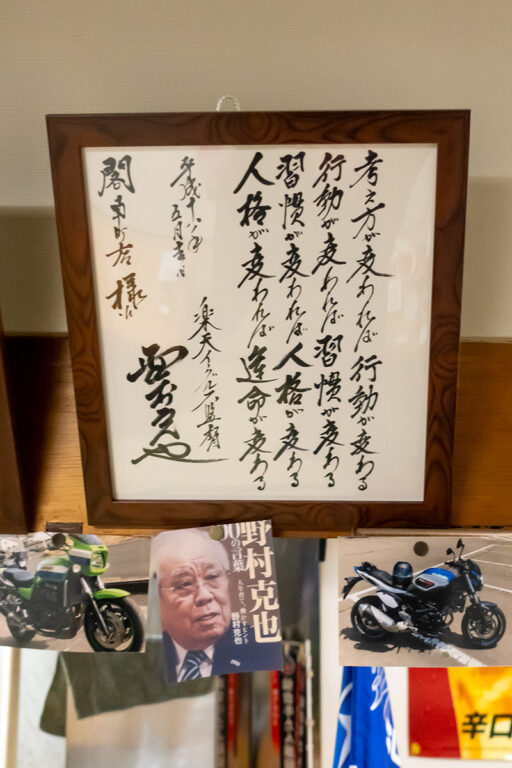 考え方が変われば 行動が変わる
行動が変われば 習慣が変わる
習慣が変われば 人格が変わる
人格が変われば 運命が変わる
楽天イーグルス監督
平成十八年
様江
野村克也
00の言葉
人を育て、動かすヒント
野村克也
辛口